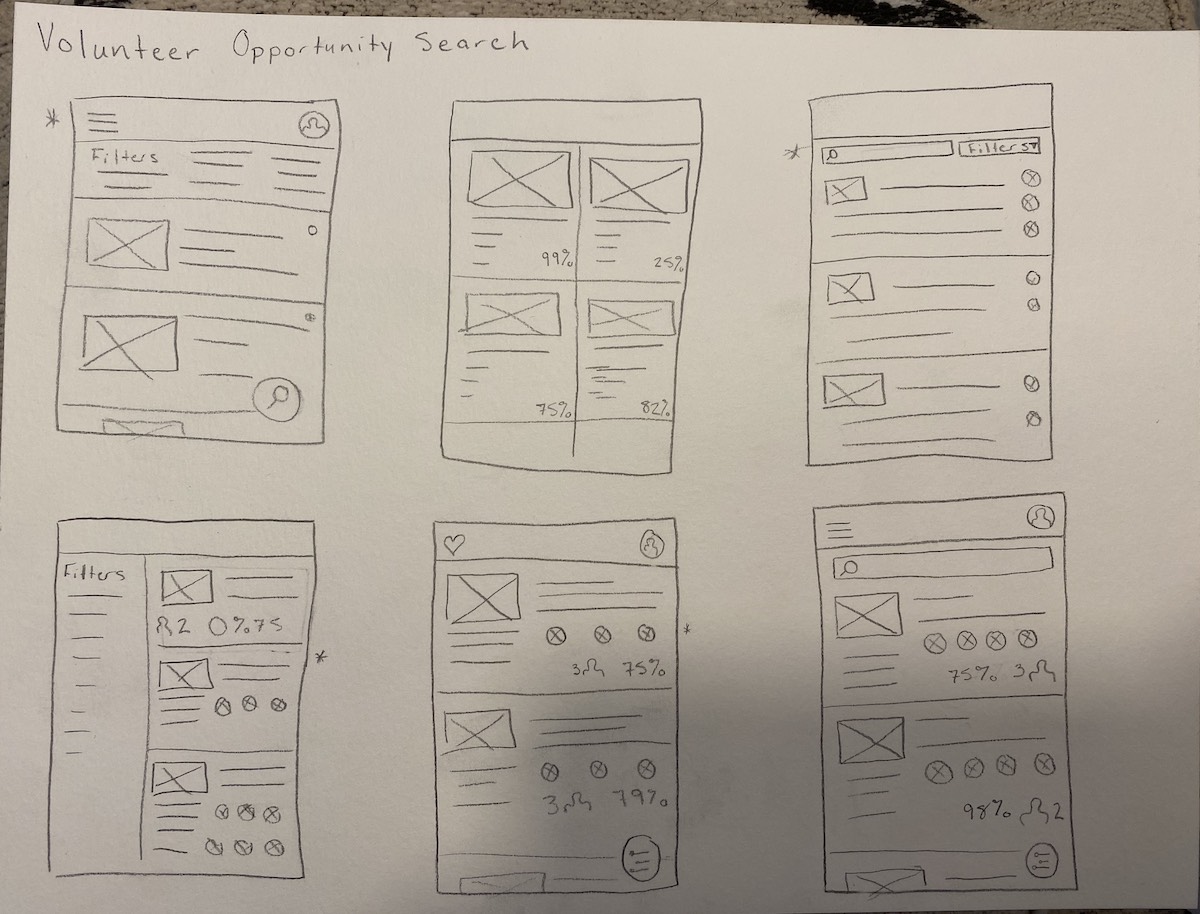 Volunteer Opportunity Search
Filters
99%
25%
75%
82%
Filters
Filters
2 %75
3 75%
3 79%
75% 3
98% 2